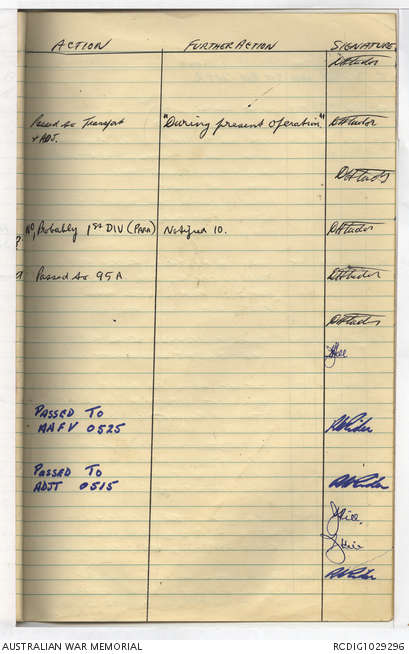 ACTION FURTHER ACTION SIGNATURE
DHTudor
Passed to Transport "During present operation" DHTudor
+ ADJ.
DHTudor
No, Probably 1st DIV (PARA) Notified 10. DHTudor
?
Passed to 95A DHTudor
DHTudor
JHill
PASSED TO
MAFV 0525
PASSED TO
ADJT 0515
JHill.
AUSTRALIAN WAR MEMORIAL RCDIG1029296